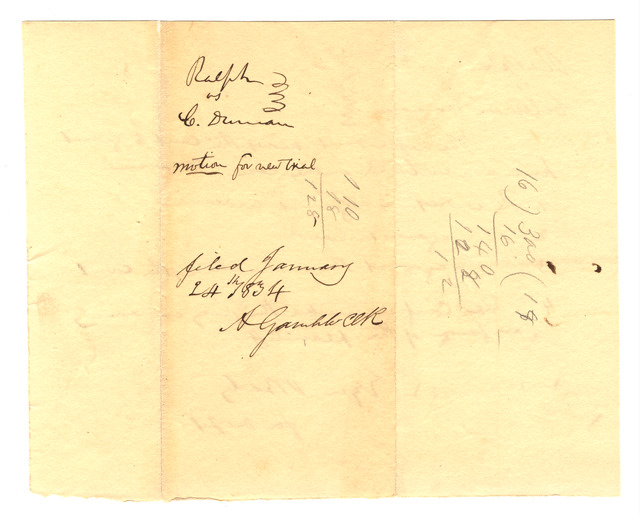 Ralph
vs
C. Duncan
motion for new trial
filed January
24th 1834
A Gamble clk
110
18
128
16) 300 (18
16
140
128
12